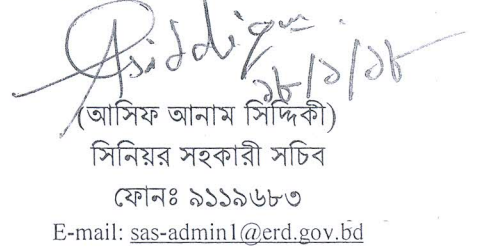 Asiddiqui
১৮/১/১৮
(আসিফ আনাম সিদ্দিকী)
সিনিয়র সহকারী সচিব
ফোনঃ ৯১১৯৬৮৩
E-mail: sas-admin1@erd.gov.bd